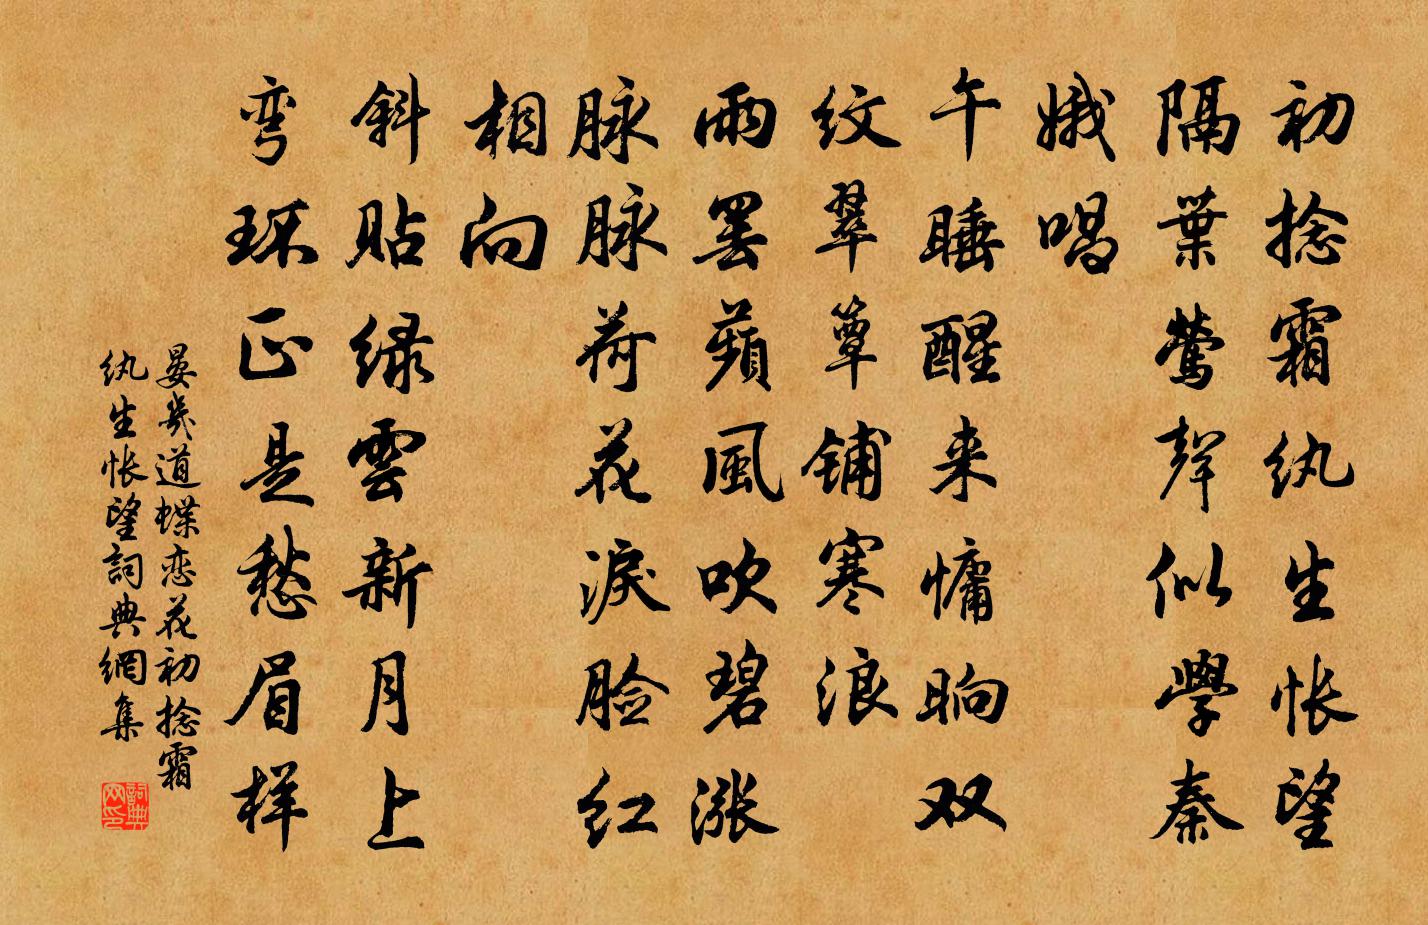 初捻霜纨生怅望
隔葉鶯聲似學秦
娥唱
午睡醒来慵晌双
纹翠簟鋪寒浪
雨罢蘋風吹碧漲
脉脉荷花淚脸红
相向
斜貼绿雲新月上
弯环正是愁眉样
晏幾道蝶恋花初捻霜
纨生怅望詞典網集
詞典网印